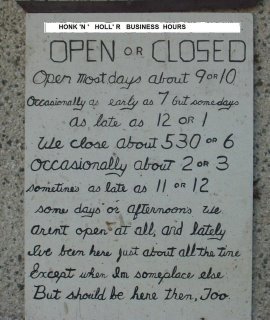 HONK 'N ' HOLL' R BUSINESS HOURS
OPEN OR CLOSED
Open most days about 9 OR 10
Occasionally as early as 7 but some days
as late as 12 OR 1
We close about 530 OR 6
Occasionally about 2 OR 3
sometimes as late as 11 OR 12
some days or afternoons we
arent open at all, and lately
I've been here just about all the time
Except when Im someplace else
But should be here then, Too.